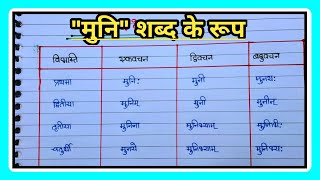 "मुनि" शब्द के रूप
विभक्ति एकवचन द्विवचन बहुवचन
प्रथमा मुनिः मुनी मुनयः
द्वितीया मुनिम् मुनी मुनीन्
तृतीया मुनिना मुनिभ्याम् मुनिभिः
चतुर्थी मुनये मुनिभ्याम् मुनिभ्यः